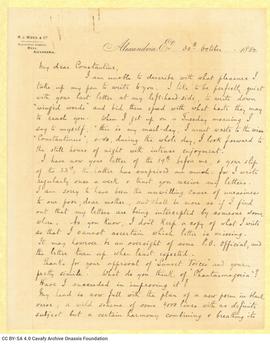 R. J. MOSS & Co.
ALEXANDRIA.
Alexandria, Ep. 30th October, 1882
My dear Constantine,
I am unable to describe with what pleasure I
take up my pen to write to you. I like to be perfectly quiet
with your last letter at my left-hand side, to write down
"winged words" and bid them speed with what haste they may
to reach you. When I get up on a Tuesday morning I
say to myself: "this is my mail-day. I must write to the
Constantine", & so, during the whole day, I look forward to
the still hours of night with intense enjoyment.
I have now your letter of the 19th before me, & your slip
of the; the latter has surprised me much: for I write
regularly once a week & hunt you receive my letters.
I am sorry to have been the unwilling cause of uneasiness
to our poor, dear mother, and shall be more so if I find
out that my letters are being intercepted by someone some
where. As you know, I don't keep a copy of what I write
so that I cannot ascertain which letter is missing.
It may however be an oversight of some P.O. Official, and
the letter turn up when least expected.
Thanks for your approval of "Sweet Voices" and your
pretty simile. What do you think of "Phantasmagoria"?
Have I succeeded in improving it?
My head is now full with the plan of a new poem in blank
verse; a wild scheme of some 4000 lines with no definite
subject but a certain harmony combining & breaking its
CC BY-SA 4.0 Cavafy Archive Onassis Foundation